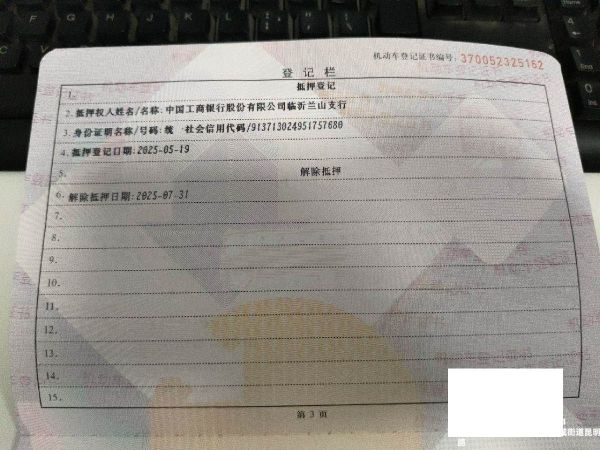 机动车登记证书编号: 370052325162
登记栏
1. 抵押登记
2. 抵押权人姓名/名称: 中国工商银行股份有限公司临沂兰山支行
3. 身份证明名称/号码: 统一社会信用代码/913713024951757680
4. 抵押登记日期:2025-05-19
5. 解除抵押
6. 解除抵押日期:2025-07-31
7.
8.
9.
10.
11.
12.
13.
14.
15.
第 3 页
街道昆明